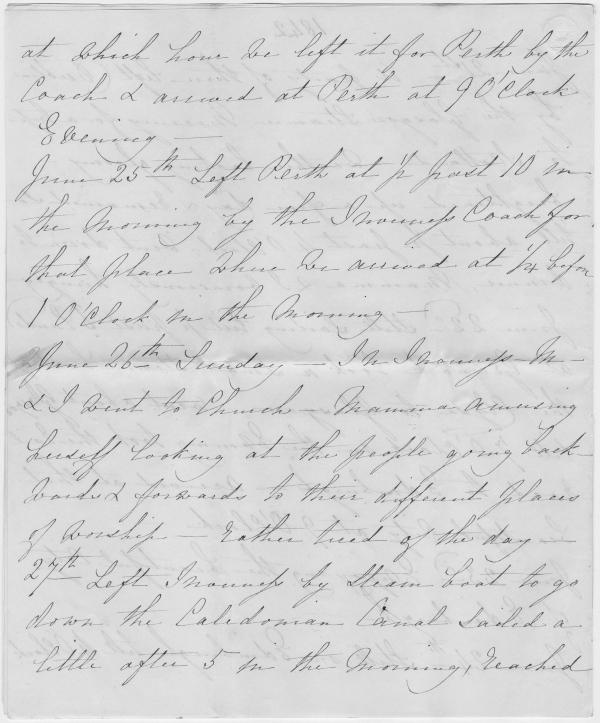 at which hour we left it for Perth by the
Coach & arrived at Perth at 9 O'Clock
Evening —
June 25th Left Perth at ½ past 10 in
the Morning by the Inverness Coach for
that place where we arrived at ¼ before
1 O'Clock in the Morning —
June 26th Sunday — In Inverness — M —
& I went to Church — Mamma amusing
herself looking at the people going back-
wards & forwards to their different places
of worship — Rather tired of the day —
27th Left Inverness by Steam boat to go
down the Caledonian Canal sailed a
little after 5 in the Morning, reached